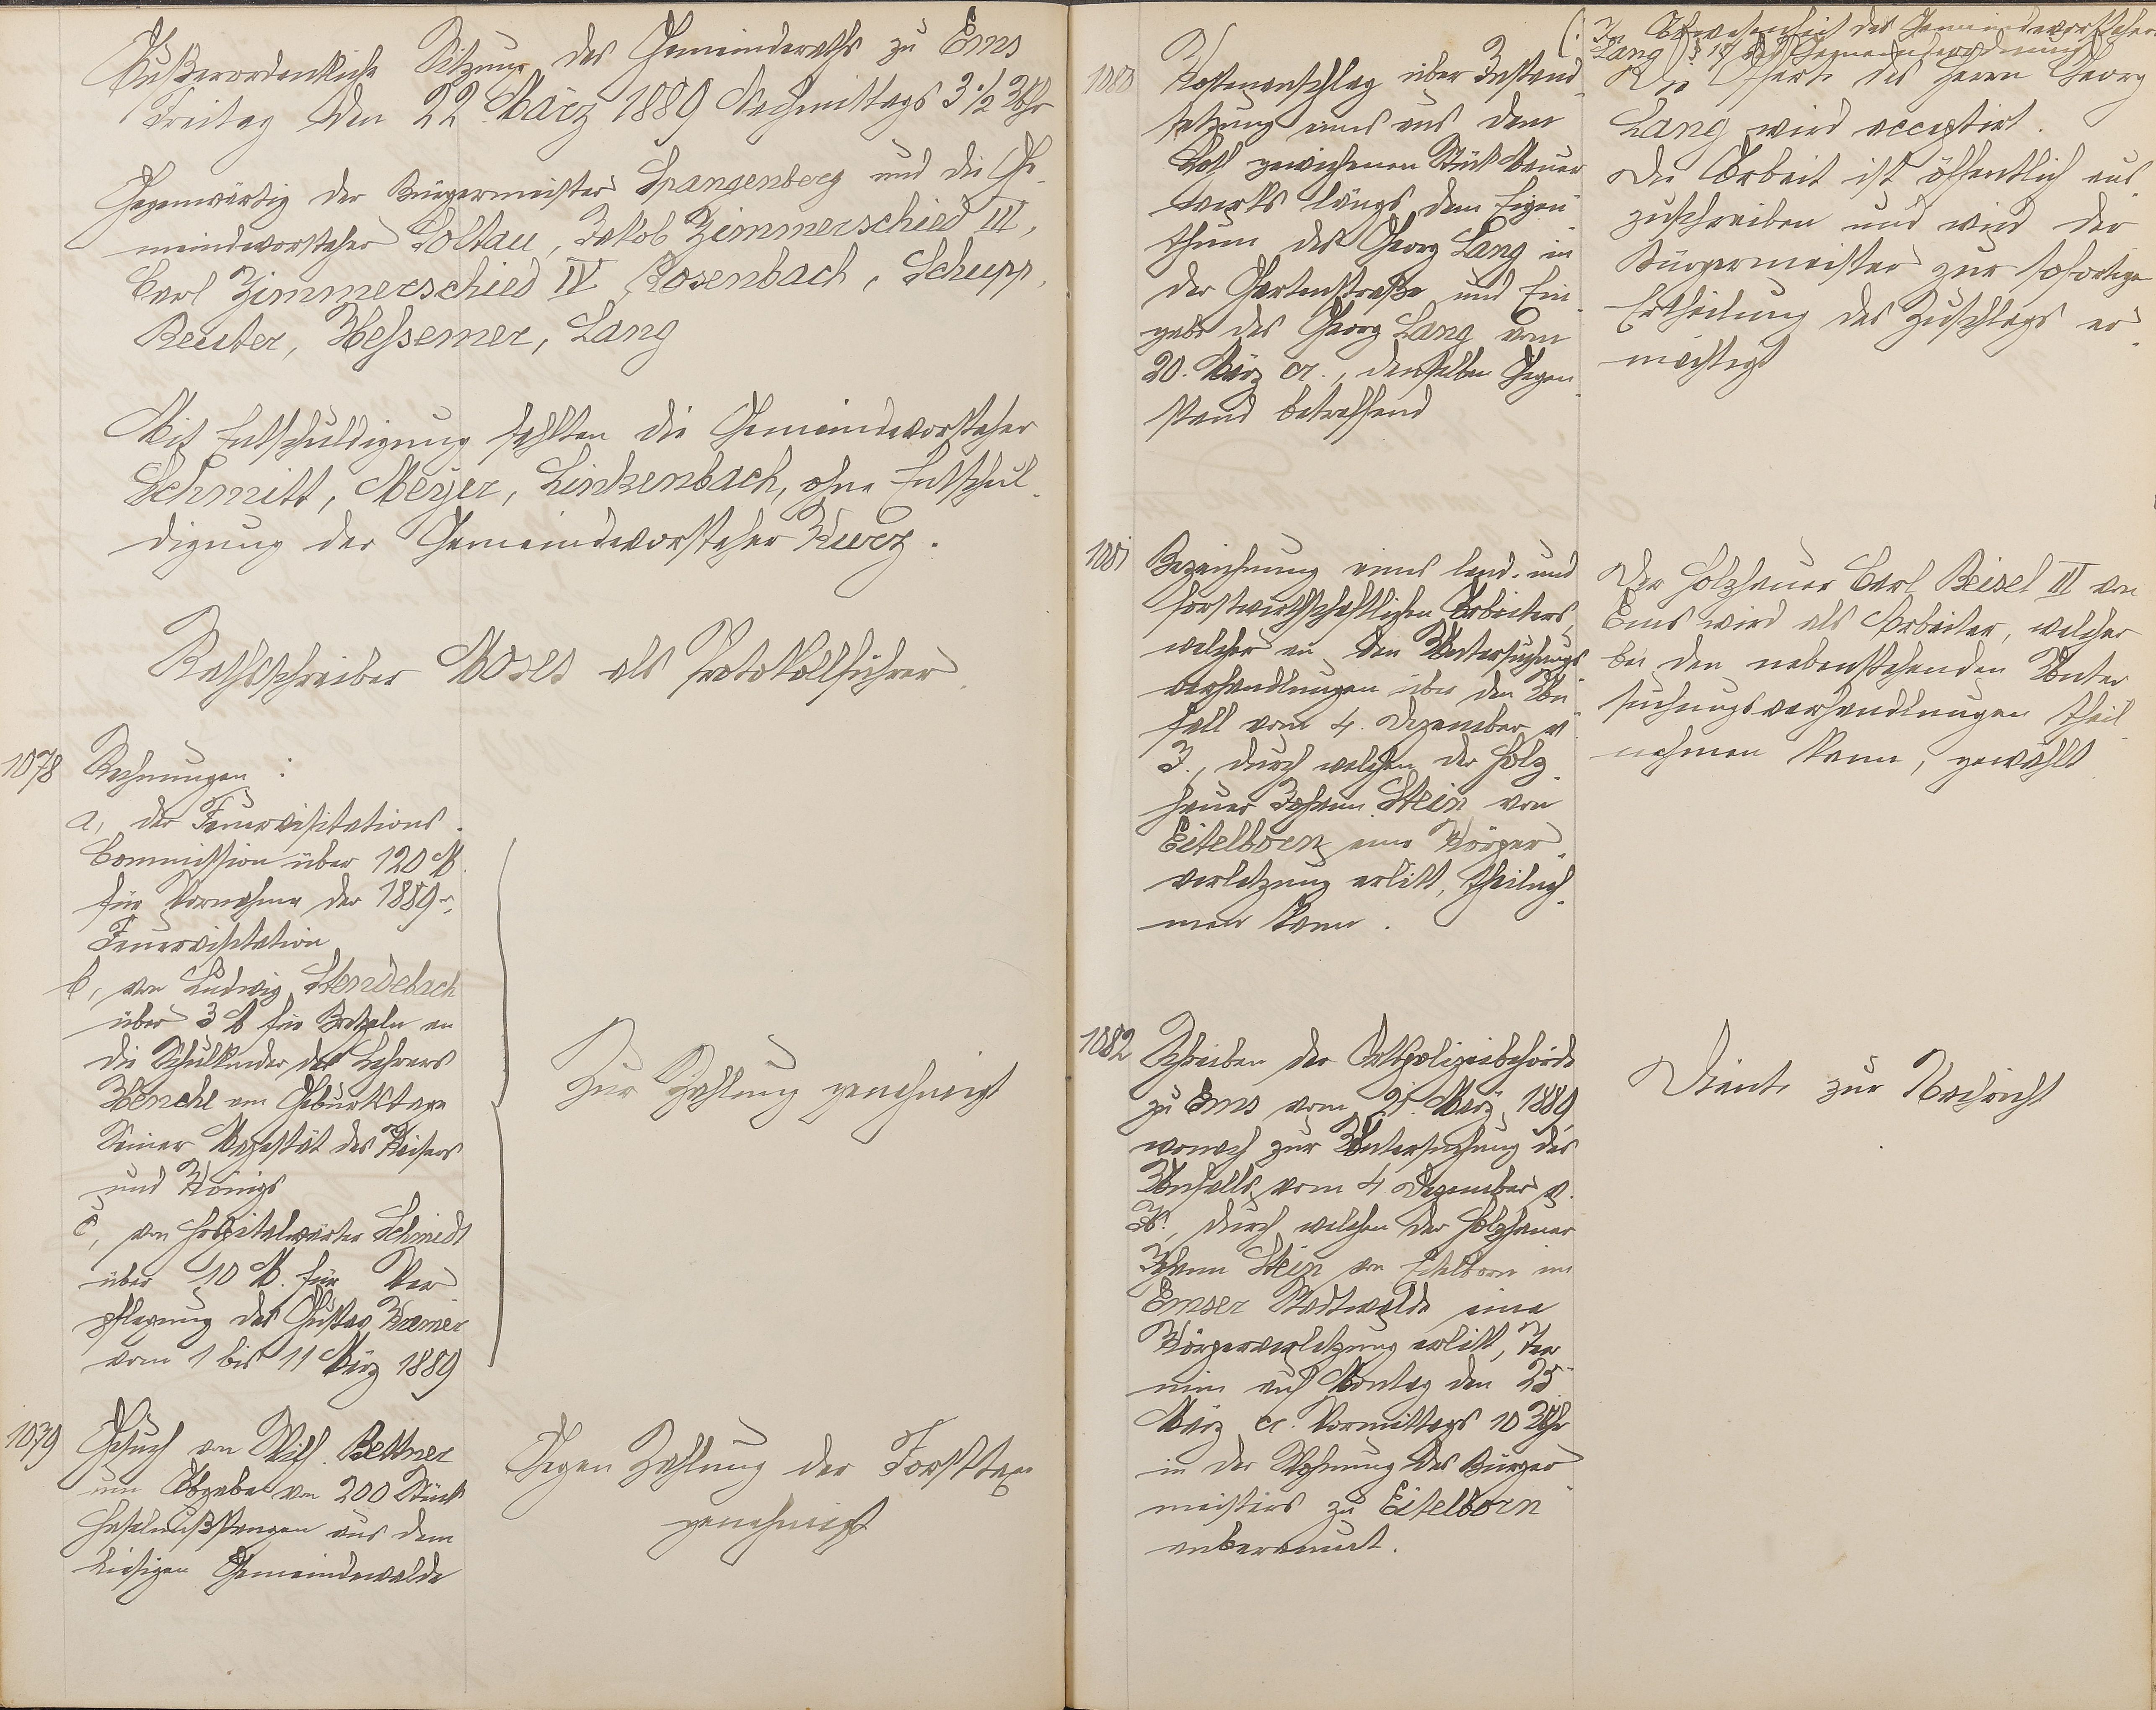 Außerordentliche Sitzung des Gemeinderaths zu Ems
Freitag den 22 März 1889 Nachmittags 3 1/2 Uhr
Gegenwärtig der Bürgermeister Spangenberg und die Ge-
meindevorsteher Soltau, Jakob Zimmerschied III,
Carl Zimmerschied IV Rosenbach, Schupp,
Reuter, Heßsemer, Lang
Mit Entschuldigung fehlten die Gemeindevorsteher
Schmitt, Meyer, Linkenbach, ohne Entschul-
digung der Gemeindevorsteher Kurz.
Rathsschreiber Moses als Protokollführer
1078 Rechnungen:
a, der Feuervisitations-
Commission über 120 M
für Vornahme der 1889r
Feuervisitation
b, von Ludwig Stendebach
über 3 M für Bretzeln an
die Schulkinder des Lehrers
Menche am Geburtstage
Seiner Majestät des Kaisers
und Königs
c, von Hospitalwärter Schmidt
über 10 M. für Ver-
pflegung des Gustav Kremer
vom 1 bis 11 März 1889
Zur Zahlung genehmigt
1079 Gesuch von Wilh. Bettner
um Abgabe von 200 Stück
Haselnußstangen aus dem
hiesigen Gemeindewalde
Gegen Zahlung der Forsttaxe
genehmigt
1080 Kostenanschlag über Instand-
setzung eines aus dem
Loth gewichenen Stück Mauer-
werks längs dem Eigen-
thum des Georg Lang in
der Gartenstraße und Ein-
gabe des Georg Lang vom
20. März cr., denselben Gegen-
stand betreffend
(: In Abwesenheit des Gemeindevorstehers
Lang § 19 der Gemeindeordnung
Die Oferte des Herrn Georg
Lang wird acceptirt.
Die Arbeit ist öffentlich aus-
zuschreiben und wird der
Bürgermeister zur sofortigen
Ertheilung des Zuschlags er-
mächtigt
1081 Bezeichnung eines land- und
forstwirthschaftlichen Arbeiters,
welcher an den Untersuchungs-
verhandlungen über den Un-
fall vom 4. Dezember v.
J., durch welchen der Holz-
hauer Johann Stein von
Eitelborn eine Körper-
verletzung erlitt, theilneh-
men kann.
Der Holzhauer Carl Beisel III von
Ems wird als Arbeiter, welcher
bei den nebenstehenden Unter-
suchungsverhandlungen theil-
nehmen kann, gewählt
1082 Schreiben der Ortspolizeibehörde
zu Ems vom 21. März 1889,
wonach zur Untersuchung des
Unfalls vom 4 Dezember v.
Js., durch welchen der Holzhauer
Johann Stein von Eitelborn im
Emser Stadtwalde eine
Körperverletzung erlitt, Ter-
min auf Montag den 25
März cr. Vormittags 10 Uhr
in der Wohnung des Bürger-
meisters zu Eitelborn
anberaumt.
Diente zur Nachricht